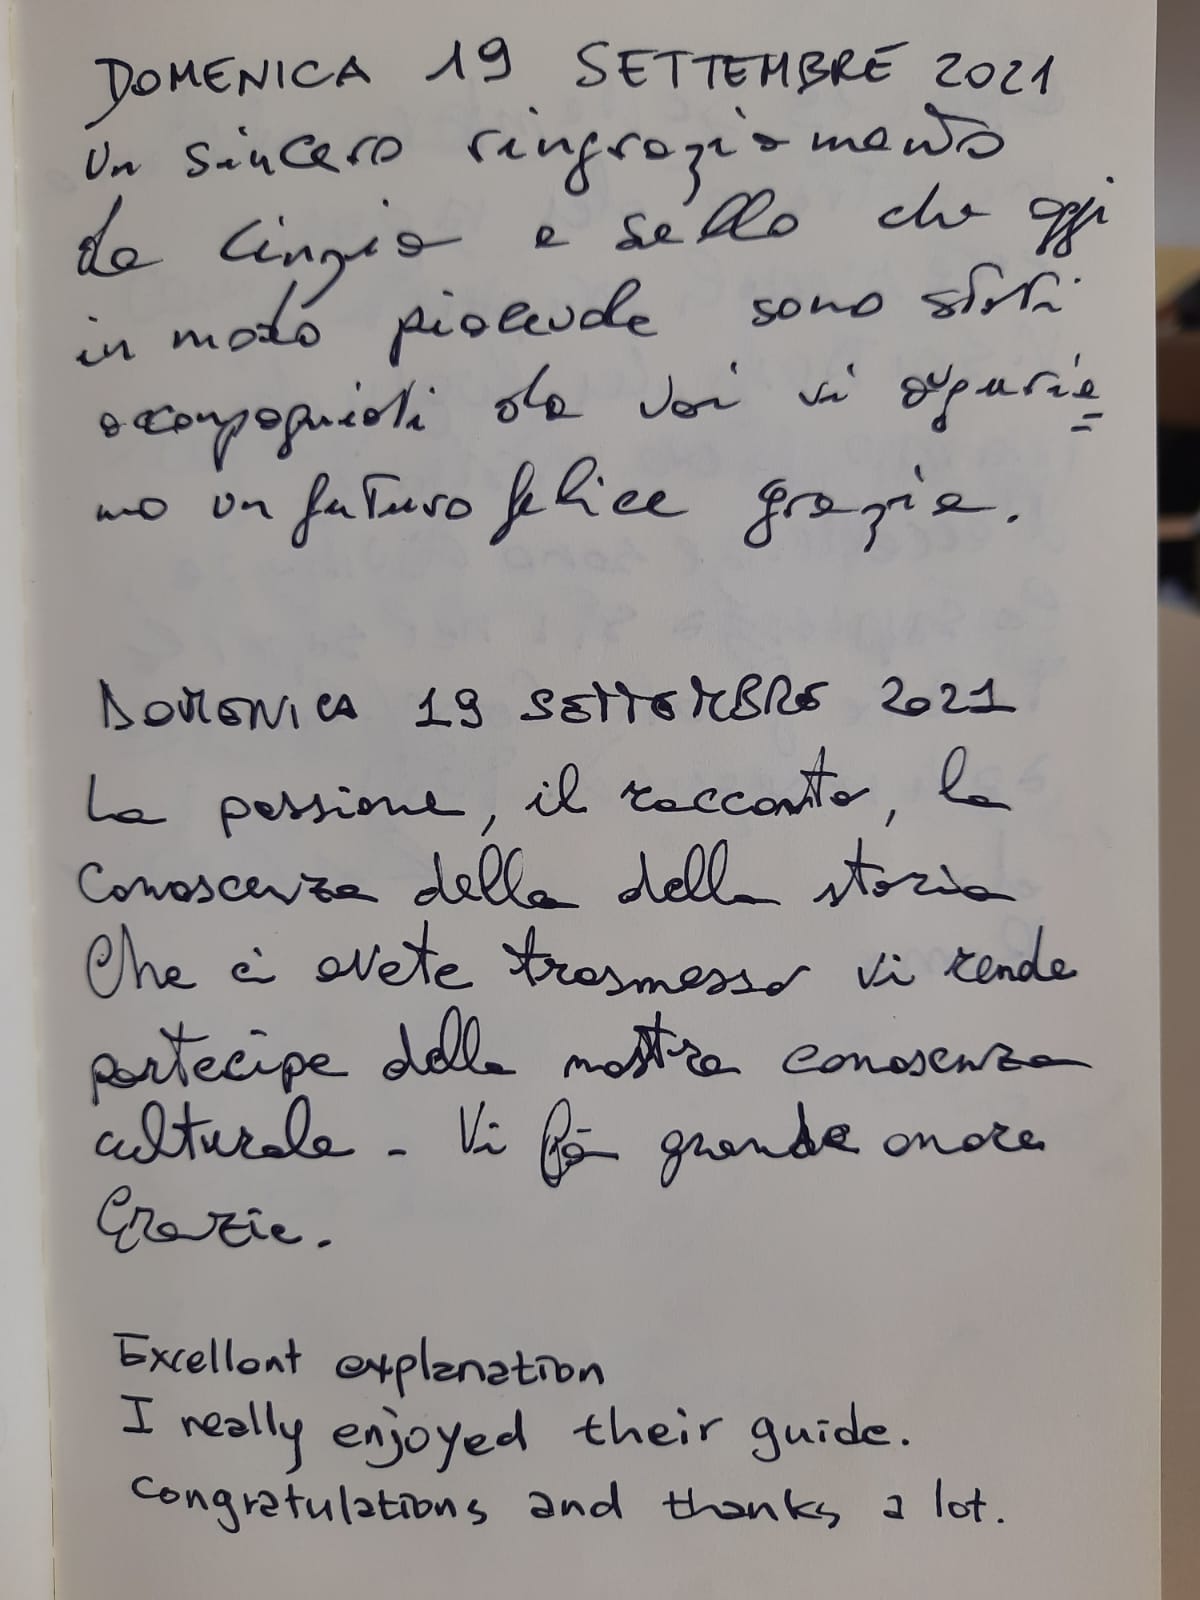 DOMENICA 19 SETTEMBRE 2021
Un sincero ringraziamento
da Cinzia e Sello che oggi
in modo piacevole sono stati
accompagniati da voi vi auguria=
mo un futuro felice grazie.
DOMENICA 19 SETTEMBRE 2021
La passione, il racconto, la
conoscenza della della storia
Che ci avete trasmesso vi rende
partecipe della nostra conoscenza
culturale - Vi fà grande onore
Grazie.
Excellent explanation
I really enjoyed their guide.
Congratulations and thanks a lot.